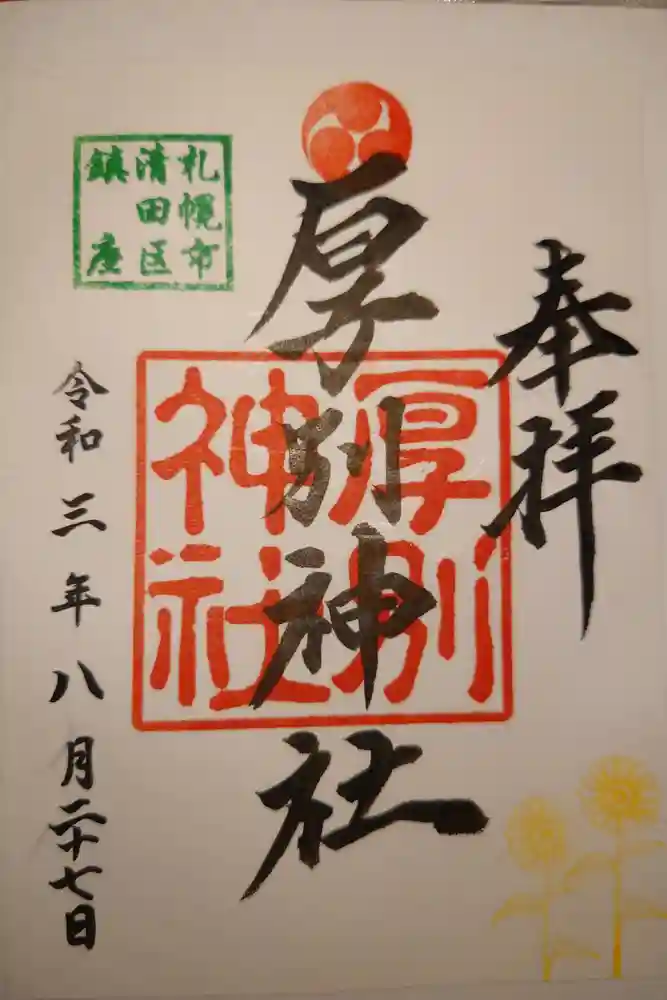 奉拝
厚別神社
厚別
神社
札幌市
清田区
鎮座
令和三年八月二十七日